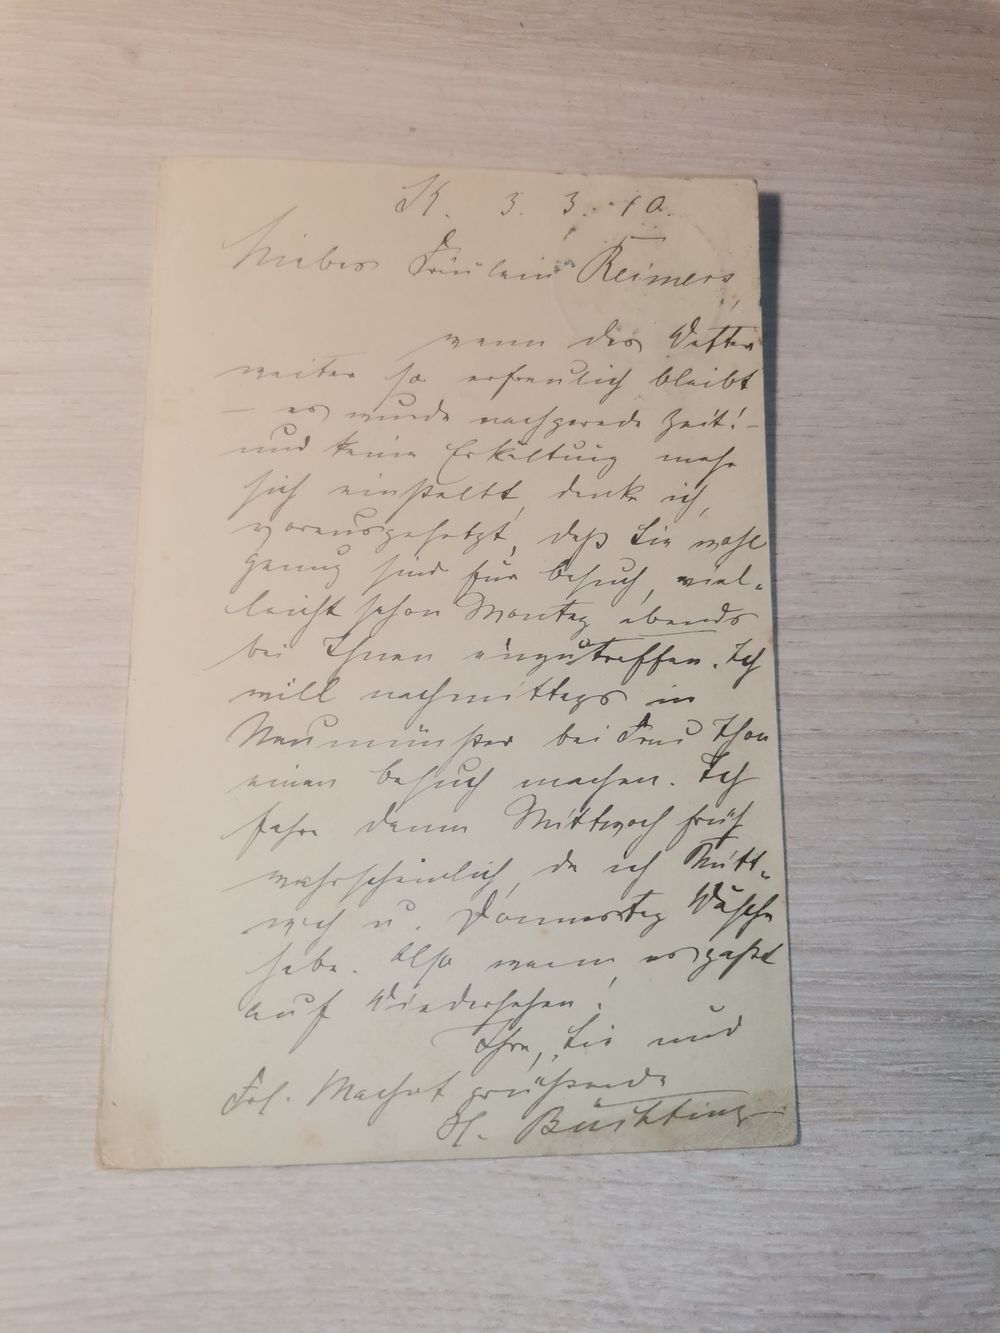 K. 3. 3. 10.
Liebes Fräulein Reimers,
wenn das Wetter
weiter so erfreulich bleibt
– es wurde nachgerade Zeit! –
und keine Erkältung mehr
sich einstellt, denke ich,
vorausgesetzt, daß Sie wohl
genug sind für Besuch, viel-
leicht schon Montag abends
bei Ihnen einzutreffen. Ich
will nachmittags in
Neumünster bei Frau Thon
einen Besuch machen. Ich
fahre dann Mittwoch früh
wahrscheinlich, da ich Mitt-
woch u. Donnerstag Wäsche
habe. Also wenn es paßt
auf Wiedersehen!
Ihre, Sie und
Frl. grüßende
H. Büchting